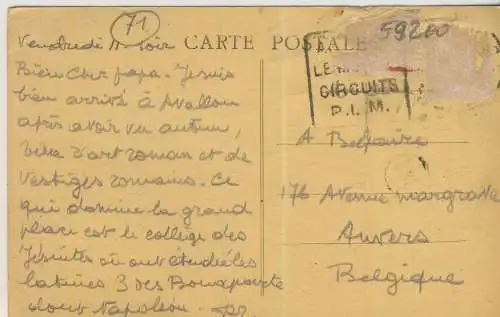 71
Vendredi soir
CARTE POSTALE
59200
Bien cher papa. Je suis
bien arrivé à Avallon
après avoir vu Autun,
ville d'art roman et de
vestiges romains. Ce
qui domine la grand
place est le collège des
Jésuites où ont étudié les
latines 3 des Bonaparte
dont Napoléon.
CIRCUITS
P. L. M.
A Belpaire
176 Avenue margrave
Anvers
Belgique